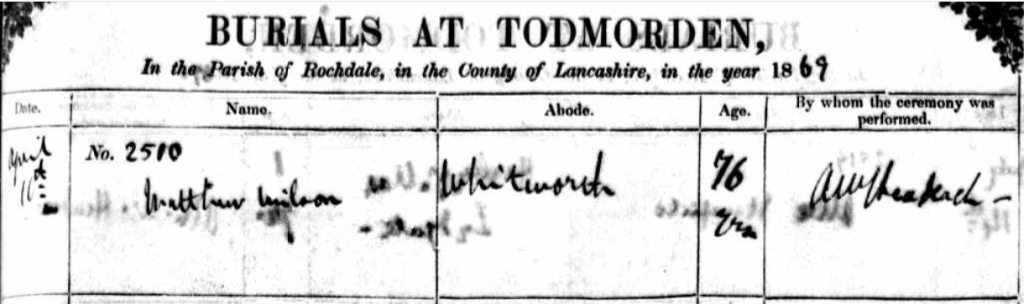 BURIALS AT TODMORDEN,
In the Parish of Rochdale, in the County of Lancashire, in the year 1869
Date. Name. Abode. Age. By whom the ceremony was performed.
April
No. 2510
Matthew Wilson Whitworth 76
yrs